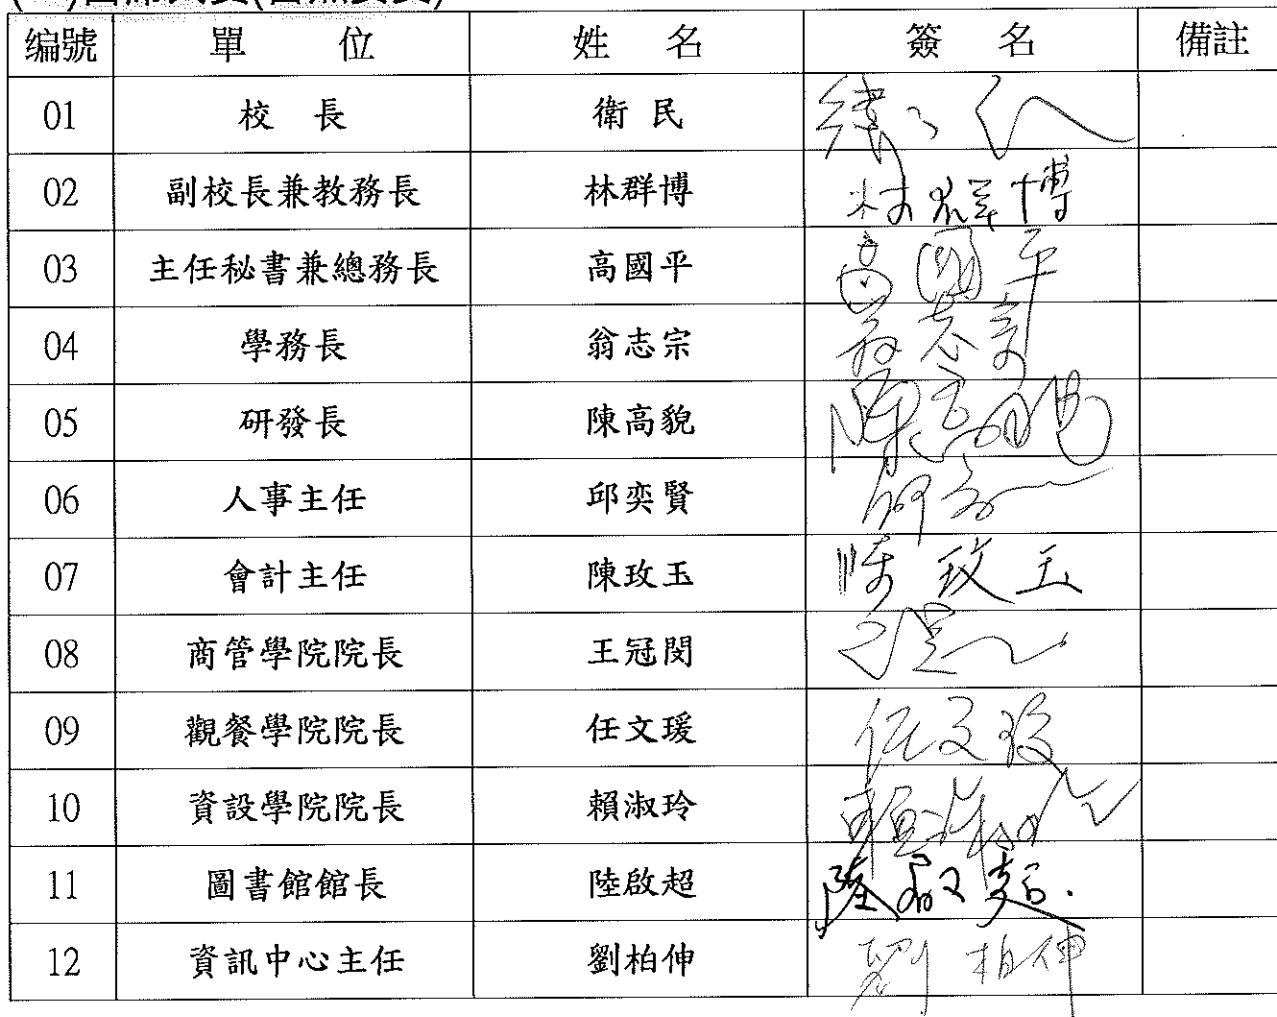 编號 單 位 姓 名 簽 名 備註
01 校 長 衛 民
02 副校長兼教務長 林群博 林群博
03 主任秘書兼總務長 高國平 高國平
04 學務長 翁志宗 翁志宗
05 研發長 陳高貌 陳高貌
06 人事主任 邱奕賢
07 會計主任 陳玫玉 陳玫玉
08 商管學院院長 王冠閔
09 觀餐學院院長 任文瑗 任文瑗
10 資設學院院長 賴淑玲 賴淑玲
11 圖書館館長 陸啟超 陸啟超
12 資訊中心主任 劉柏伸 劉柏伸